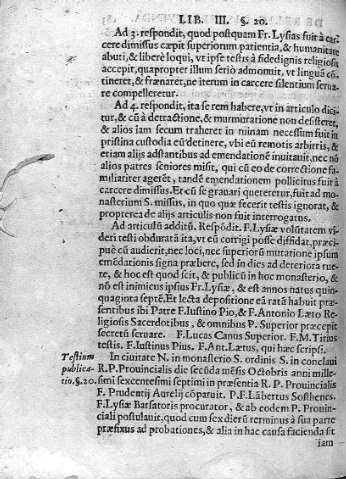 LIB. III. §. 20.
Ad 3. respondit, quod postquam Fr. Lysias fuit à car-
cere dimissus cæpit superiorum patientia, & humanitate
abuti, & liberè loqui, vt ipse testis à fidedignis religiosis
accepit, quapropter illum seriò admonuit, vt linguā cō-
tineret, & frænaret, ne iterum in carcere silentium serua-
re compelleretur.
Ad 4. respondit, ita se rem habere, vt in articulo dici-
tur, & cū à detractione, & murmuratione non desisteret,
& alios iam secum traheret in ruinam necessum fuit in
pristina custodia eū detinere, vbi eū remotis arbitris, &
etiam alijs adstantibus ad emendationē inuitauit, nec nō
alios patres seniores misit, qui cū eo de correctione fa-
miliariter agerēt, tandē emendationem pollicitus fuit à
carcere dimissus. Et cū se grauari quereretur, fuit ad mo-
nasterium S. missus, in quo quæ fecerit testis ignorat, &
propterea de alijs articulis non fuit interrogatus.
Ad articulū additū. Respōdit. F. Lysiæ volūtatem vi-
deri testi obduratā ita, vt eū corrigi posse diffidat, præci-
puè cū audierit, nec loci, nec superiorū mutatione ipsum
emēdationis signa præbere, sed in dies ad deteriora rue-
re, & hoc est quod scit, & publicū in hoc monasterio, &
nō est inimicus ipsius Fr. Lysiæ, & est annos natus quin-
quaginta septē. Et lecta depositione eā ratā habuit præ-
sentibus ibi Patre F. Iustino Pio, & F. Antonio Læto Re
ligiosis Sacerdotibus, & omnibus P. Superior præcepit
secretū seruare. F. Lucas Canus Superior. F. M. Titius
testis. F. Iustinus Pius. F. Ant. Lætus, qui hæc scripsi.
Testium publica- tio. §. 20.
In ciuitate N. in monasterio S. ordinis S. in conclaui
R. P. Prouincialis die secūda mēsis Octobris anni mille-
simi sexcentesimi septimi in præsentia R. P. Prouincialis
F. Prudentij Aurelij cōparuit. P. F. Lābertus Sosthenes.
F. Lysiæ Barsatoris procurator, & ab eodem P. Prouin-
ciali postulauit, quod cum sex dierū terminus à sua parte
præfixus ad probationes, & alia in hac causa facienda sit
iam